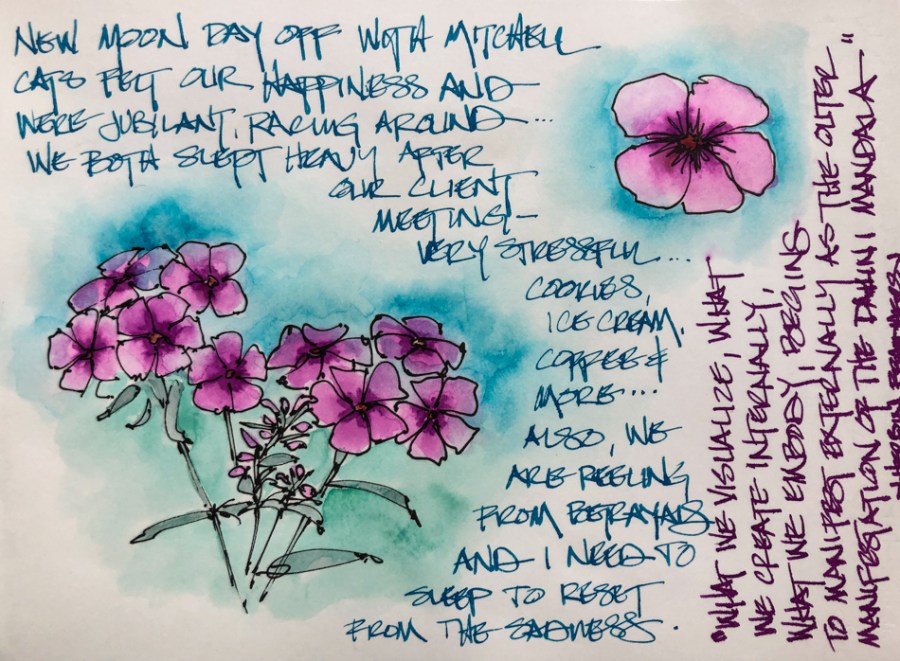 NEW MOON DAY OFF WITH MITCHELL
CATS FELT OUR HAPPINESS AND
WERE JUBILANT. RACING AROUND...
WE BOTH SLEPT HEAVY AFTER
OUR CLIENT
MEETING —
VERY STRESSFUL...
COOKIES,
ICE CREAM,
COFFEE &
MORE...
ALSO, WE
ARE REELING
FROM BETRAYALS
AND I NEED TO
SLEEP TO RESET
FROM THE SADNESS.
"WHAT WE VISUALIZE, WHAT
WE CREATE INTERNALLY,
WHAT WE EMBODY, BEGINS
TO MANIFEST EXTERNALLY AS THE OUTER
MANIFESTATION OF THE DAKINI MANDALA — "